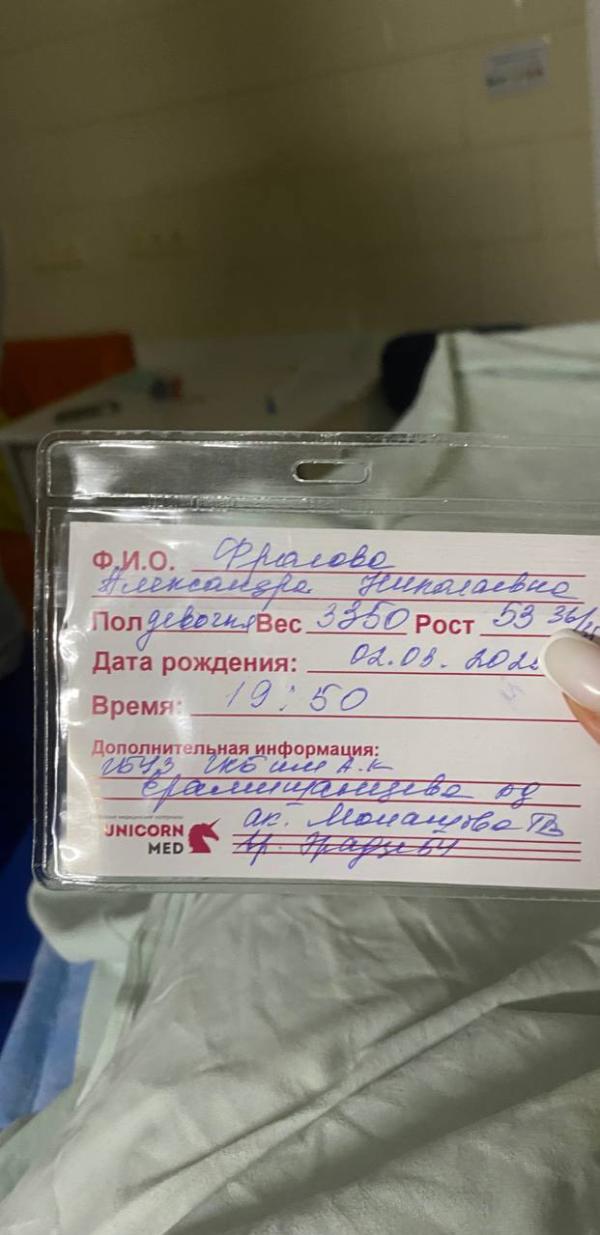 Ф.И.О. Фролова
Александра Николаевна
Пол девочка Вес 3350 Рост 53 36/
Дата рождения: 02.03.202
Время: 19:50
Дополнительная информация:
ГБУЗ ГКБ им А.К
Ерамишанцева РД
ак. Моланцова ТВ
UNICORN
MED